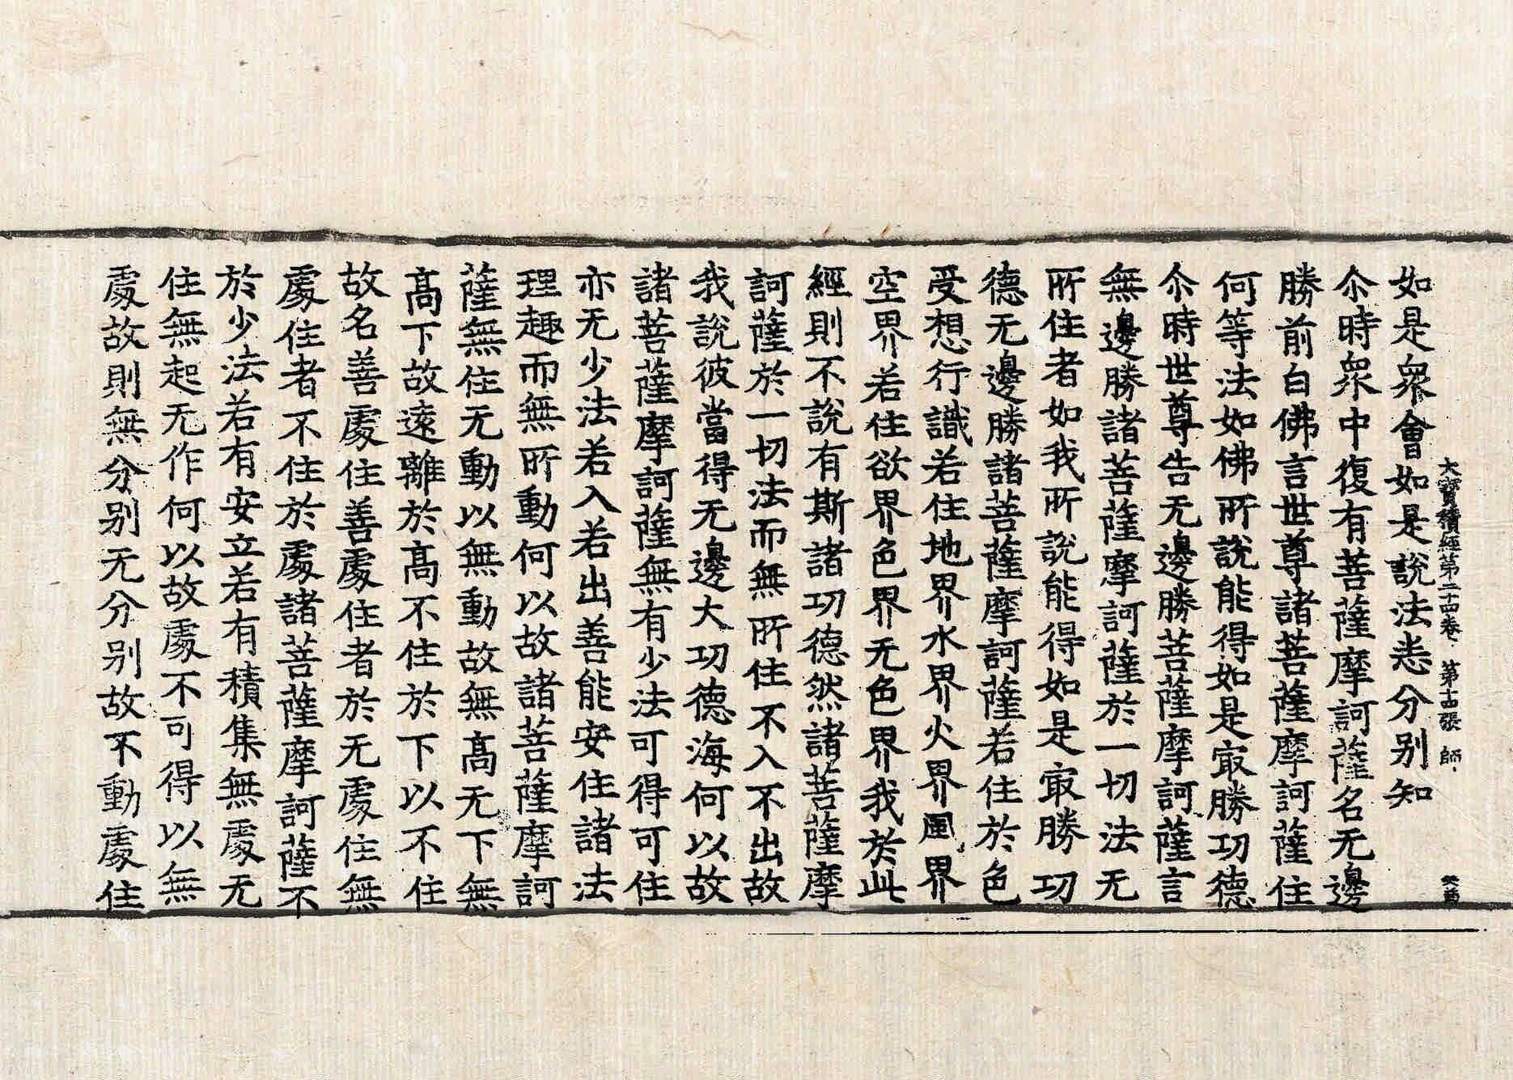 大寶積經第二十四卷 第十五張 師
如是衆會如是說法恙分別知
尒時衆中復有菩薩摩訶薩名无邊
勝前白佛言世尊諸菩薩摩訶薩住
何等法如佛所說能得如是㝡勝功德
尒時世尊告无邊勝菩薩摩訶薩言
無邊勝諸菩薩摩訶薩於一切法无
所住者如我所說能得如是㝡勝功
德无邊勝諸菩薩摩訶薩若住於色
受想行識若住地界水界火界風界
空界若住欲界色界无色界我於此
經則不說有斯諸功德然諸菩薩摩
訶薩於一切法而無所住不入不出故
我說彼當得无邊大功德海何以故
諸菩薩摩訶薩無有少法可得可住
亦无少法若入若出善能安住諸法
理趣而無所動何以故諸菩薩摩訶
薩無住无動以無動故無高无下無
高下故遠離於高不住於下以不住
故名善處住善處住者於无處住無
處住者不住於處諸菩薩摩訶薩不
於少法若有安立若有積集無處无
住無起无作何以故處不可得以無
處故則無分别无分别故不動處住